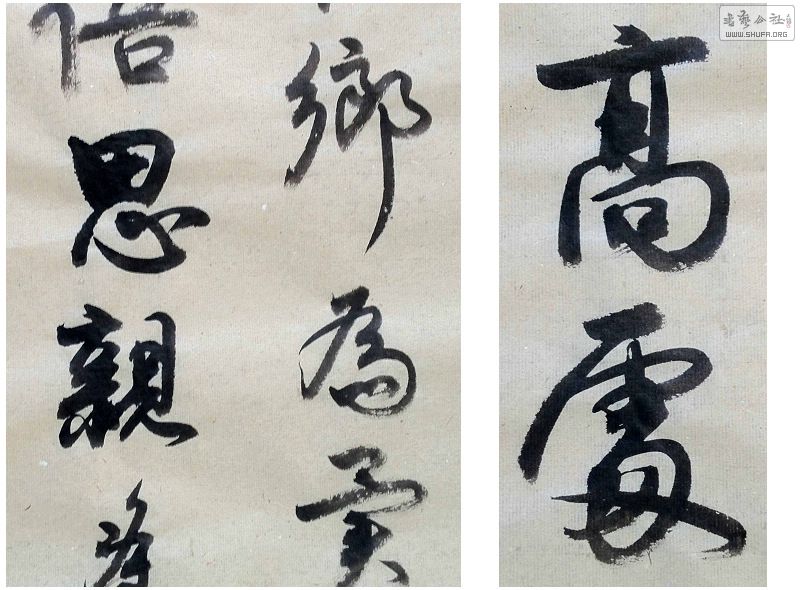 鄉為異
倍思親
高處
書藝公社
WWW.SHUFA.ORG